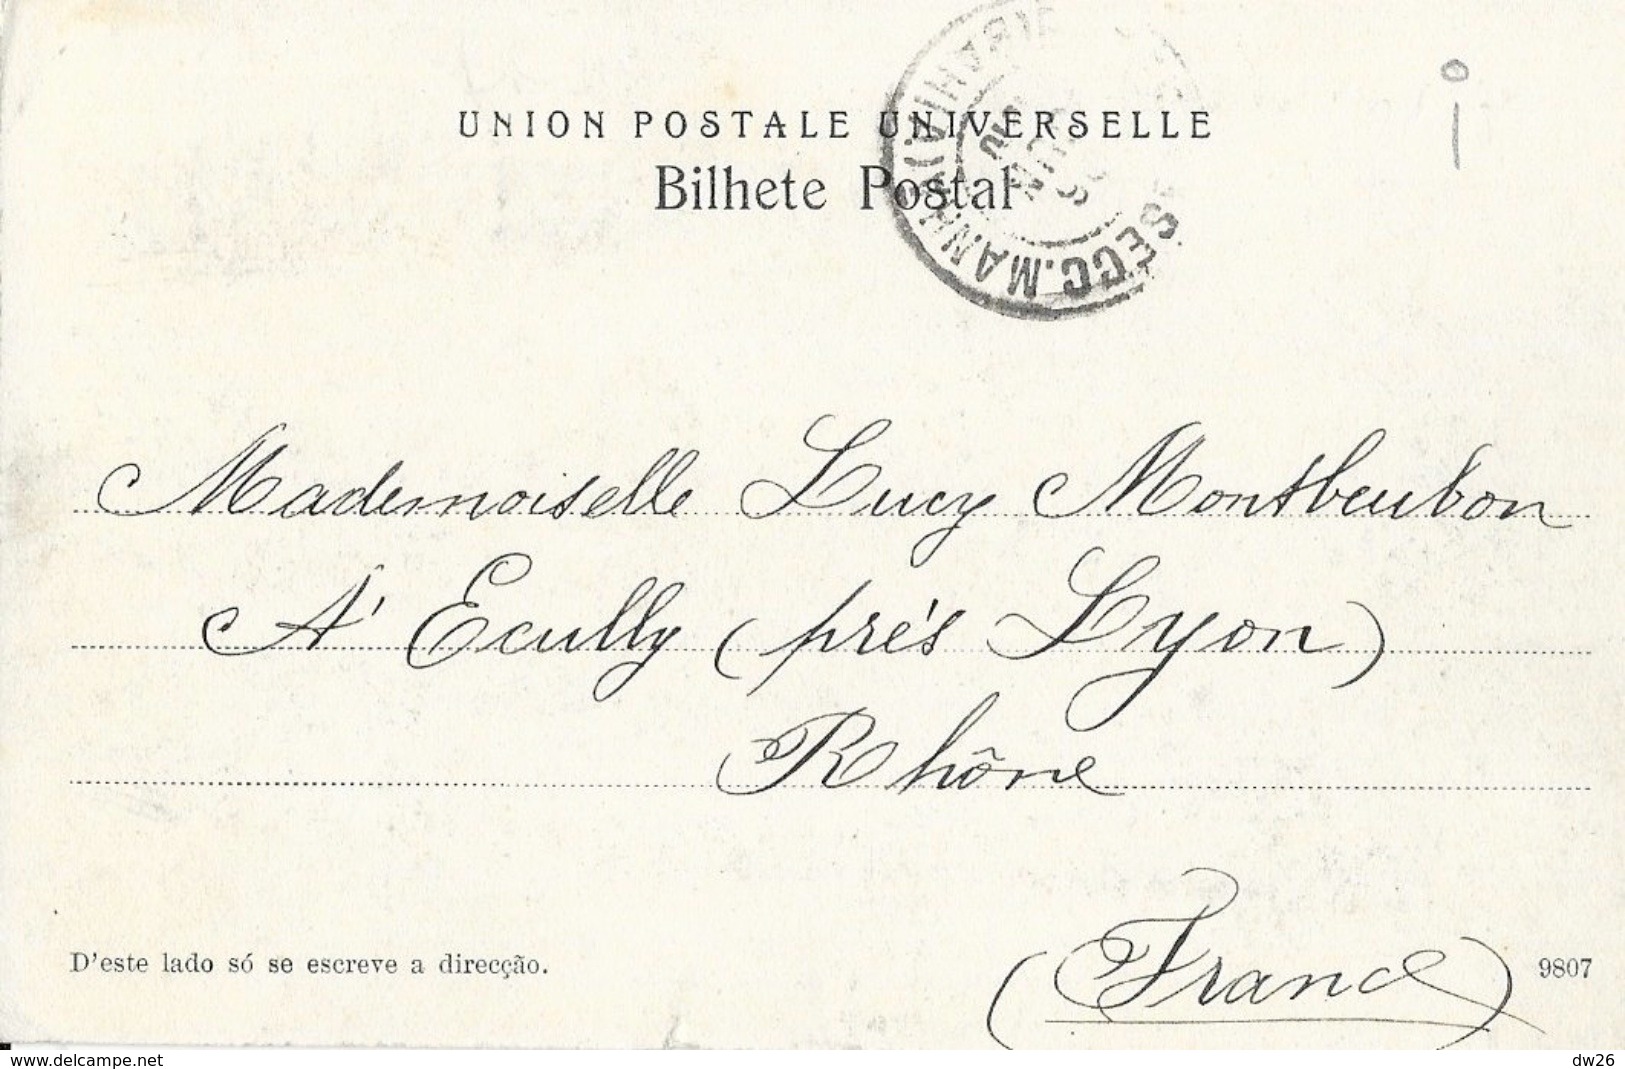 UNION POSTALE UNIVERSELLE
Bilhete Postal
SECC. MANHÃ
JUN
Mademoiselle Lucy Montbeubon
A' Ecully (prés Lyon)
Rhône
(France)
D'este lado só se escreve a direcção.
9807
www.delcampe.net
dw26